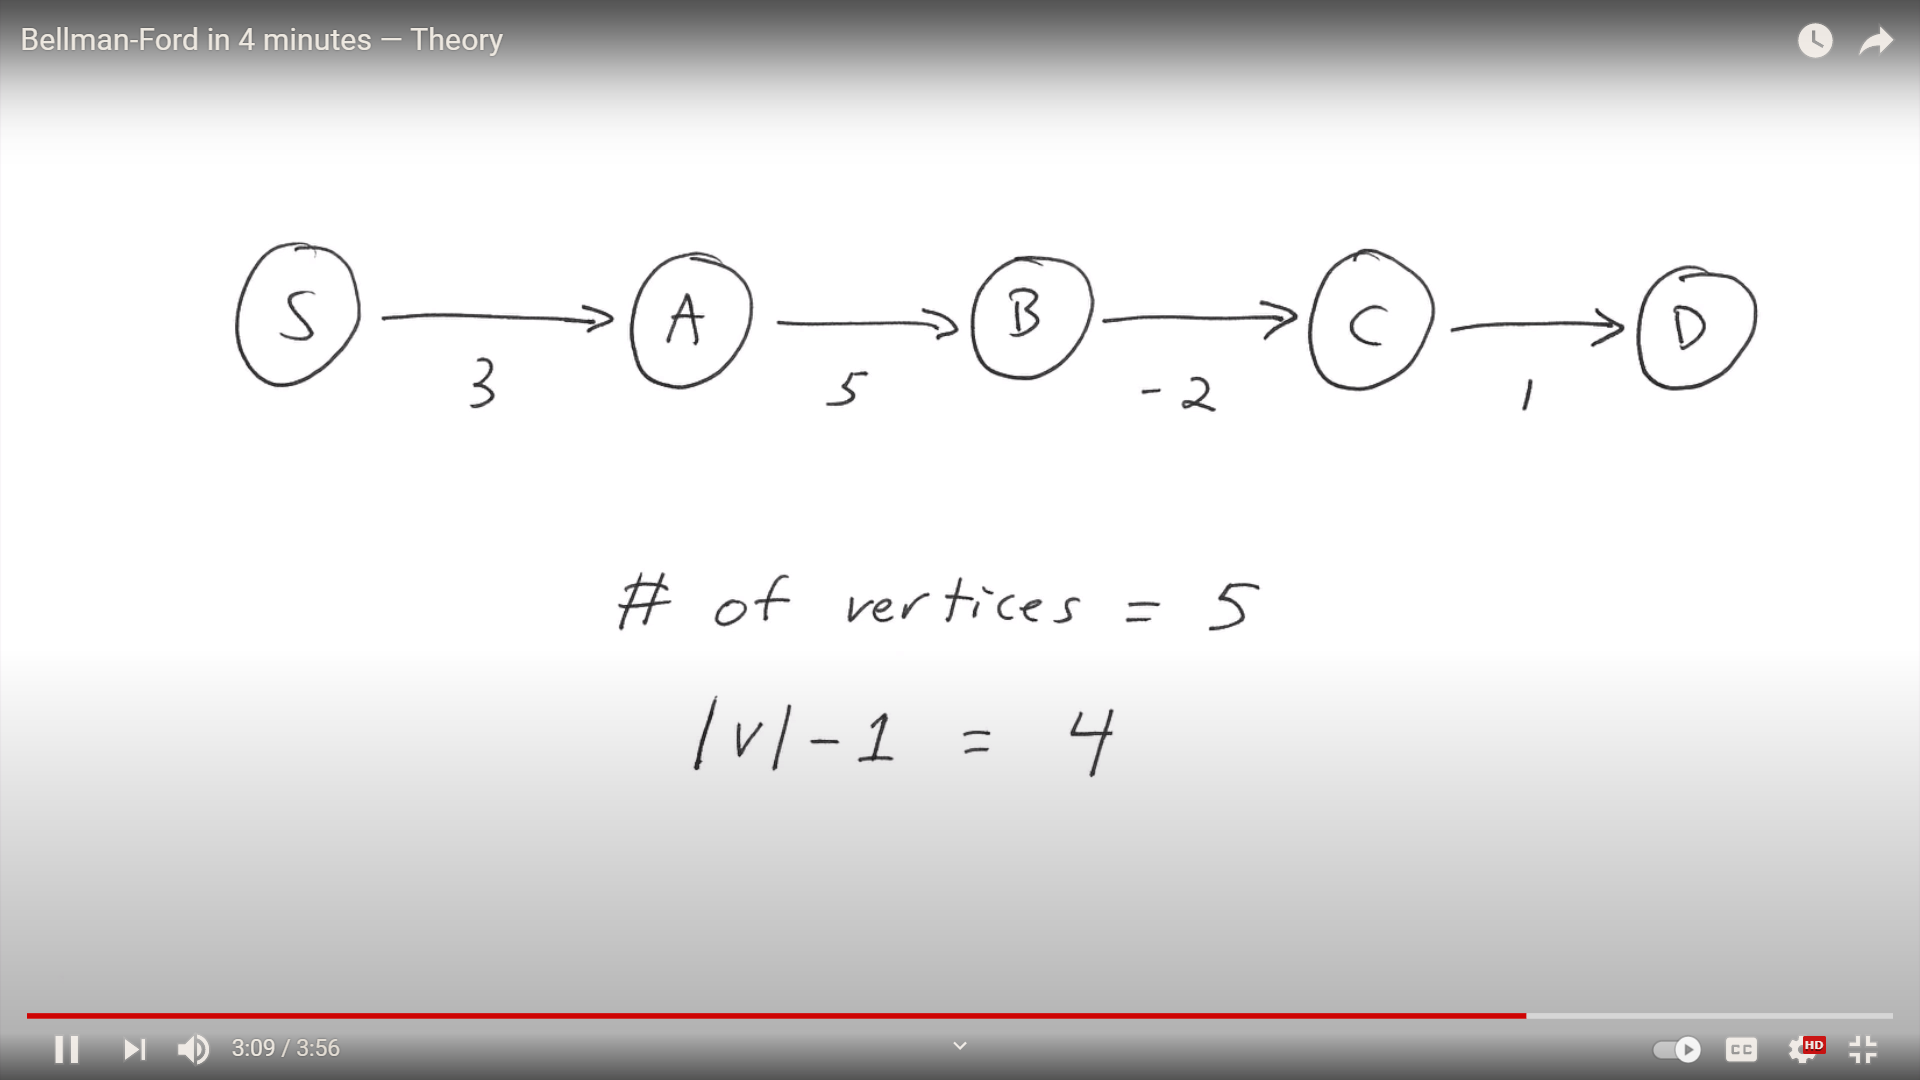 Bellman-Ford in 4 minutes — Theory
S A B C D
3 5 -2 1
# of vertices = 5
|v|-1 = 4
3:09 / 3:56
CC HD